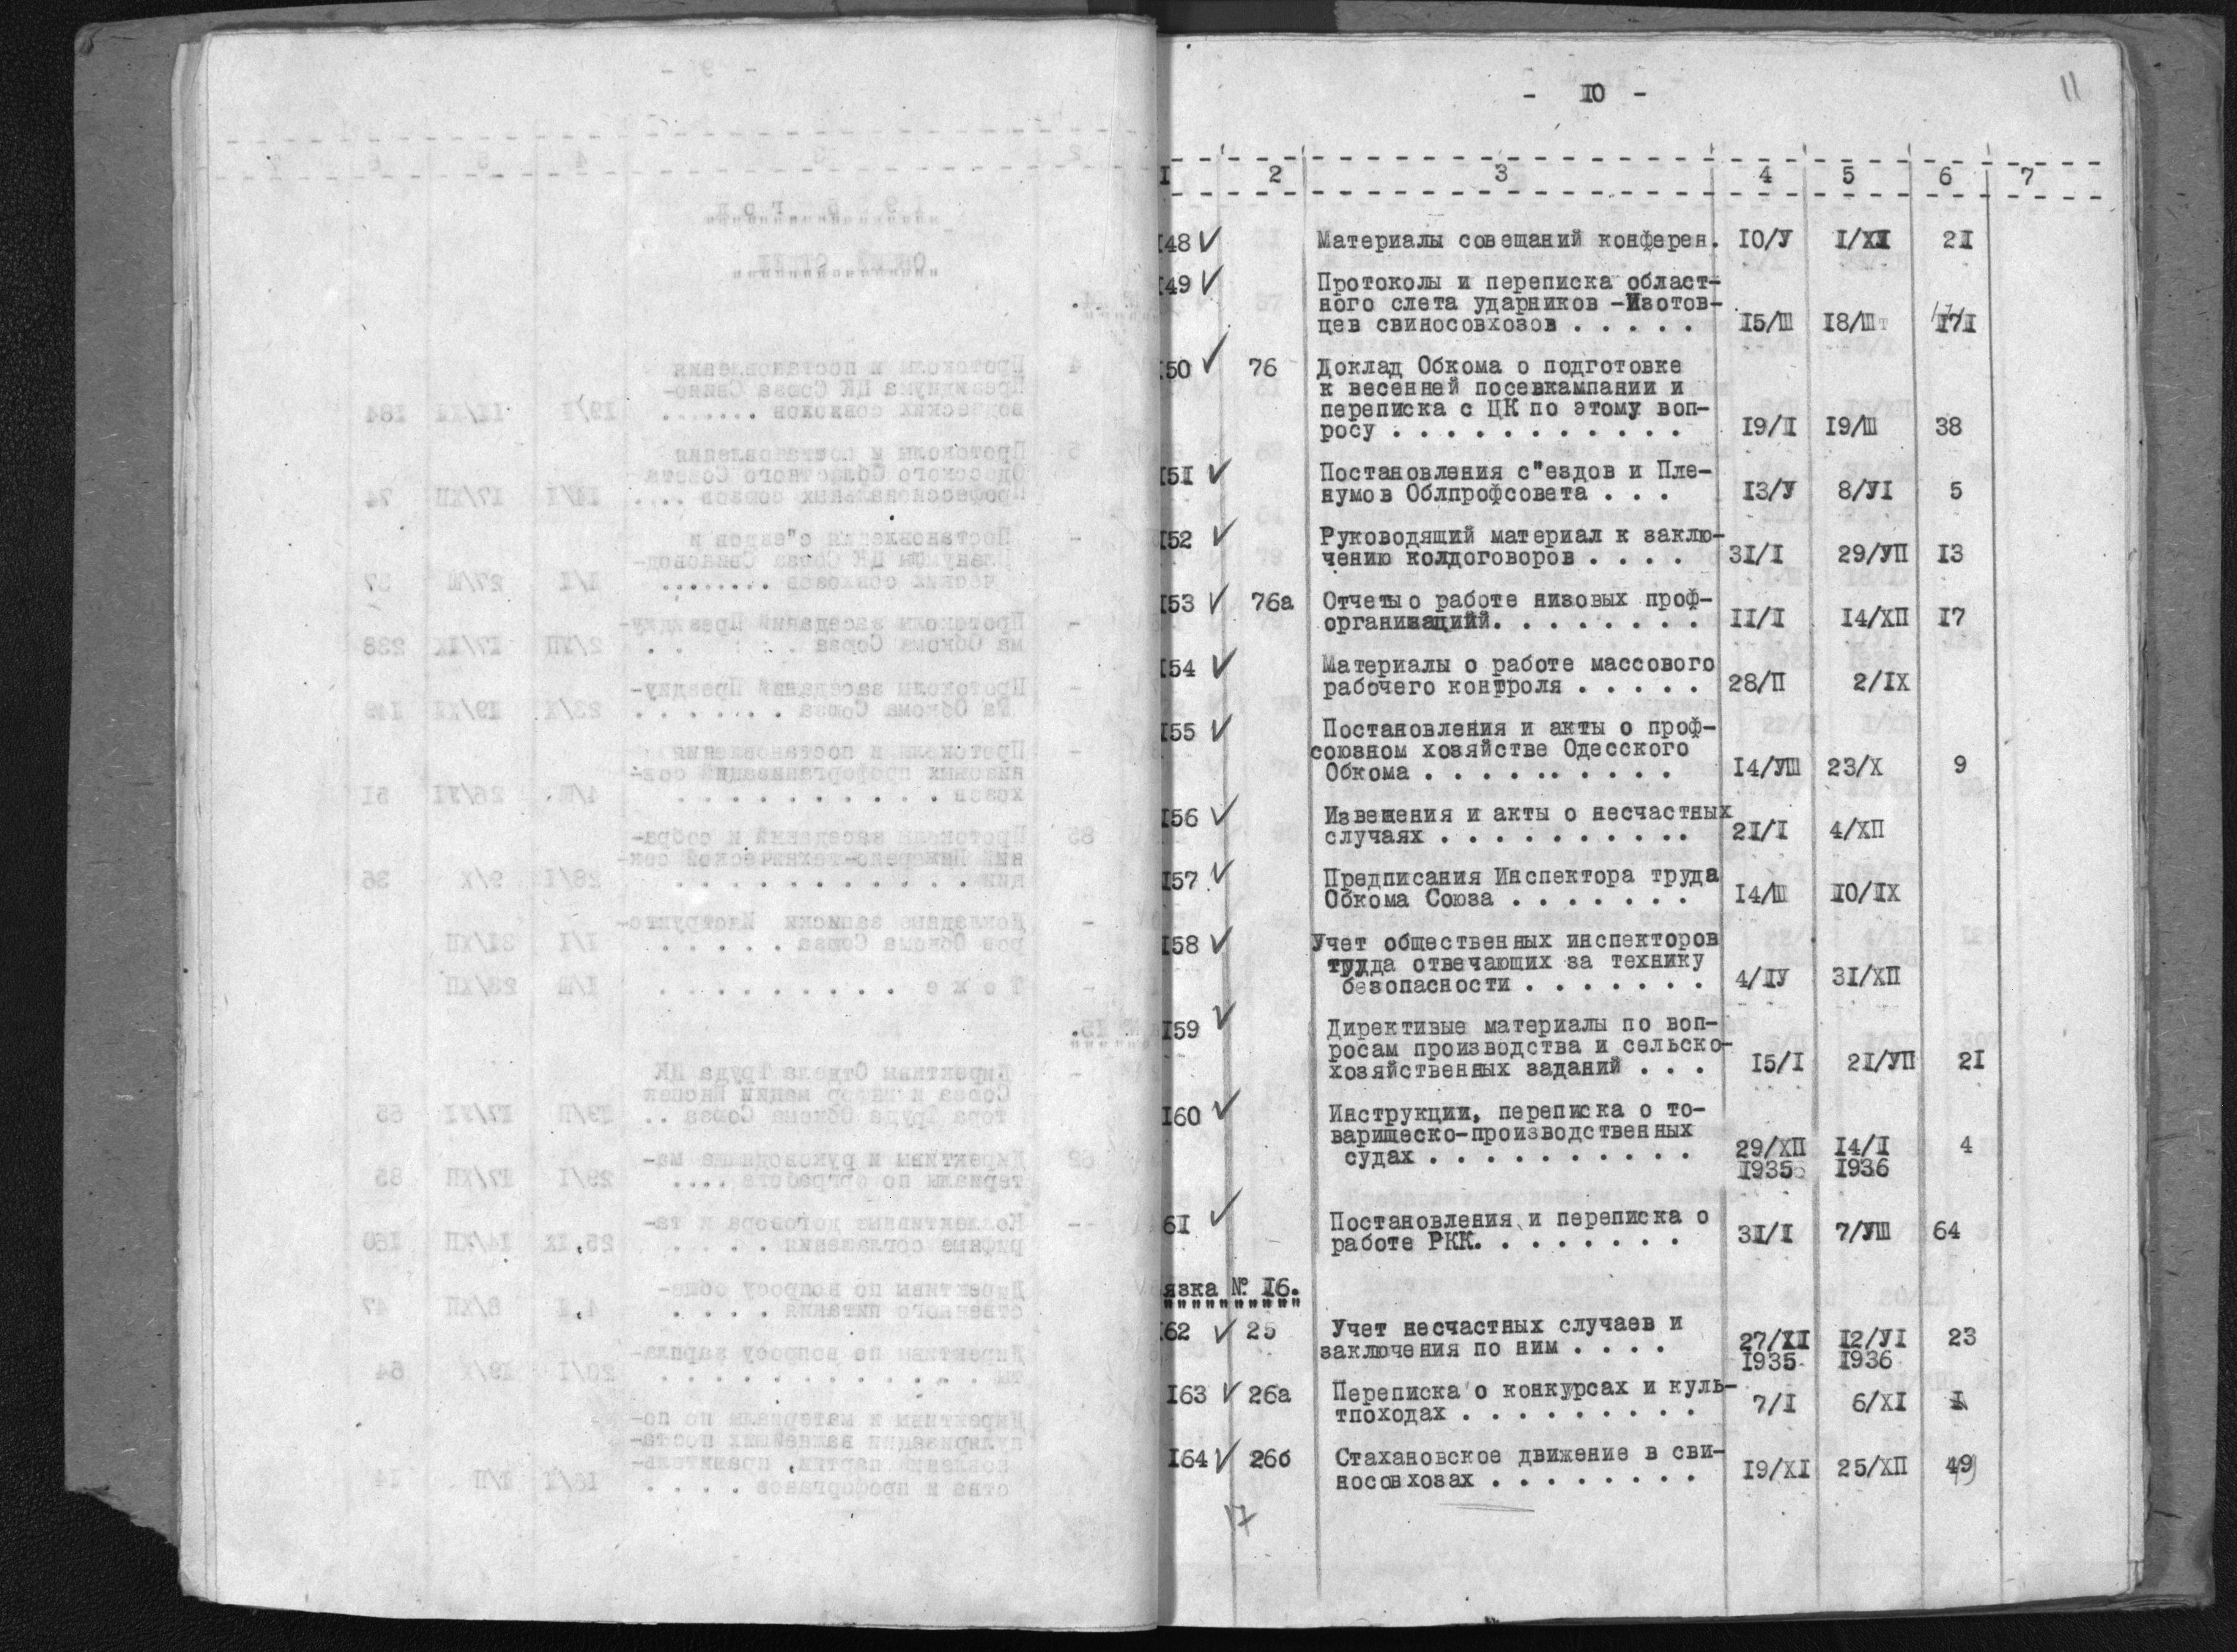 - 10 -
11
I 2 3 4 5 6 7
148 ✓ Материалы совещаний конферен. 10/У I/XI 21
149 ✓ Протоколы и переписка област-
ного слета ударников -Изотов-
цев свиносовхозов . . . . . 15/Ш 18/Ш 171
150 ✓ 76 Доклад Обкома о подготовке
к весенней посевкампании и
переписка с ЦК по этому воп-
росу . . . . . . . . . . . 19/I 19/Ш 38
151 ✓ Постановления с"ездов и Пле-
нумов Облпрофсовета . . . 13/У 8/УI 5
152 ✓ Руководящий материал к заклю-
чению колдоговоров . . . . 31/I 29/УП 13
153 ✓ 76а Отчеты о работе низовых проф-
организаций. . . . . . . . 11/I 14/ХП 17
154 ✓ Материалы о работе массового
рабочего контроля . . . . . 28/П 2/IX
155 ✓ Постановления и акты о проф-
союзном хозяйстве Одесского
Обкома . . . . . . . . . . 14/УШ 23/X 9
156 ✓ Извещения и акты о несчастных
случаях . . . . . . . . . . 21/I 4/ХП
157 ✓ Предписания Инспектора труда
Обкома Союза . . . . . . . 14/Ш 10/IX
158 ✓ Учет общественных инспекторов
труда отвечающих за технику
безопасности . . . . . . . 4/IУ 31/ХП
159 ✓ Директивые материалы по воп-
росам производства и сельско-
хозяйственных заданий . . . 15/I 21/УП 21
160 ✓ Инструкции, переписка о то-
варищеско-производственных
судах . . . . . . . . . . 29/ХП 14/I 4
1935 1936
61 ✓ Постановления и переписка о
работе РКК. . . . . . . . 31/I 7/УШ 64
язка № 16.
162 ✓ 25 Учет несчастных случаев и
заключения по ним . . . . 27/XI 12/УI 23
1935 1936
163 ✓ 26а Переписка о конкурсах и куль-
тпоходах . . . . . . . . . 7/I 6/XI 1
164 ✓ 26б Стахановское движение в сви-
носовхозах . . . . . . . . 19/XI 25/ХП 49
17